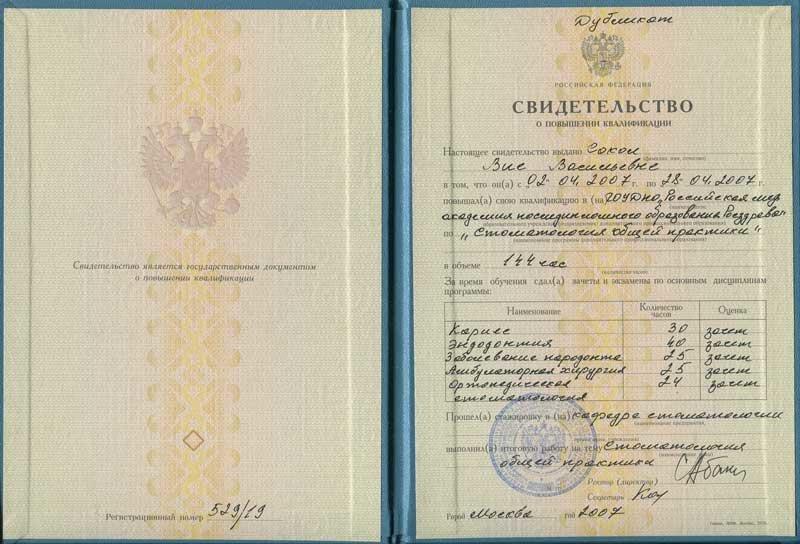 Свидетельство является государственным документом
о повышении квалификации
Регистрационный номер 529/19
Дубликат
РОССИЙСКАЯ ФЕДЕРАЦИЯ
СВИДЕТЕЛЬСТВО
О ПОВЫШЕНИИ КВАЛИФИКАЦИИ
Настоящее свидетельство выдано Сокол
(фамилия, имя, отчество)
Васильевне
в том, что он(а) с 02.04.2007 г. по 28.04.2007 г.
повышал(а) свою квалификацию в (на) ГОУ ДПО Российская мед
(наименование)
академия последипломного образования Росздрава
образовательного учреждения (подразделения) дополнительного профессионального образования)
по "Стоматология общей практики"
(наименование программы дополнительного профессионального образования)
в объеме 144 час
(количество часов)
За время обучения сдал(а) зачеты и экзамены по основным дисциплинам
программы:
Наименование Количество часов Оценка
Кариес 30 зачет
Эндодонтия 40 зачет
Заболевание пародонта 25 зачет
Амбулаторная хирургия 25 зачет
Ортопедическая 24 зачет
стоматология
Прошел(а) стажировку в (на) кафедре стоматологии
(наименование предприятия,
организации, учреждения)
выполнил(а) итоговую работу на тему Стоматология
(наименование темы)
общей практики
Ректор (директор)
Секретарь
Город Москва год 2007